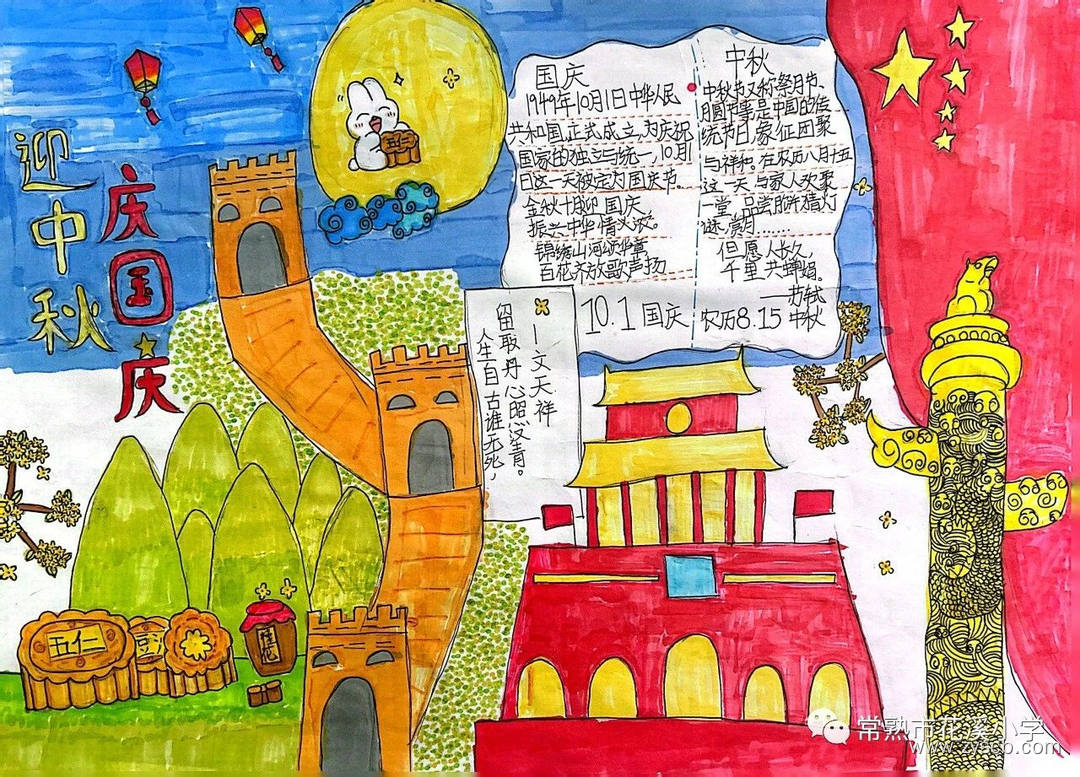 迎中秋
庆国庆
国庆
1949年10月1日中华人民
共和国正式成立,为庆祝
国家的独立与统一,10月1
日这一天被定为国庆节。
金秋十月迎国庆
振兴中华情义浓。
锦绣山河颂华章
百花齐放歌声扬
10.1 国庆
中秋
中秋节又称祭月节、
月圆节等是中国的传
统节日,象征团聚
与祥和。在农历八月十五
这一天与家人欢聚
一堂,品尝月饼猜灯
谜,赏月……
但愿人长久
千里共婵娟。
——苏轼
农历8.15 中秋
人生自古谁无死,
留取丹心照汗青。
—文天祥
五仁
五仁
豆沙
桂花
常熟市花溪小学